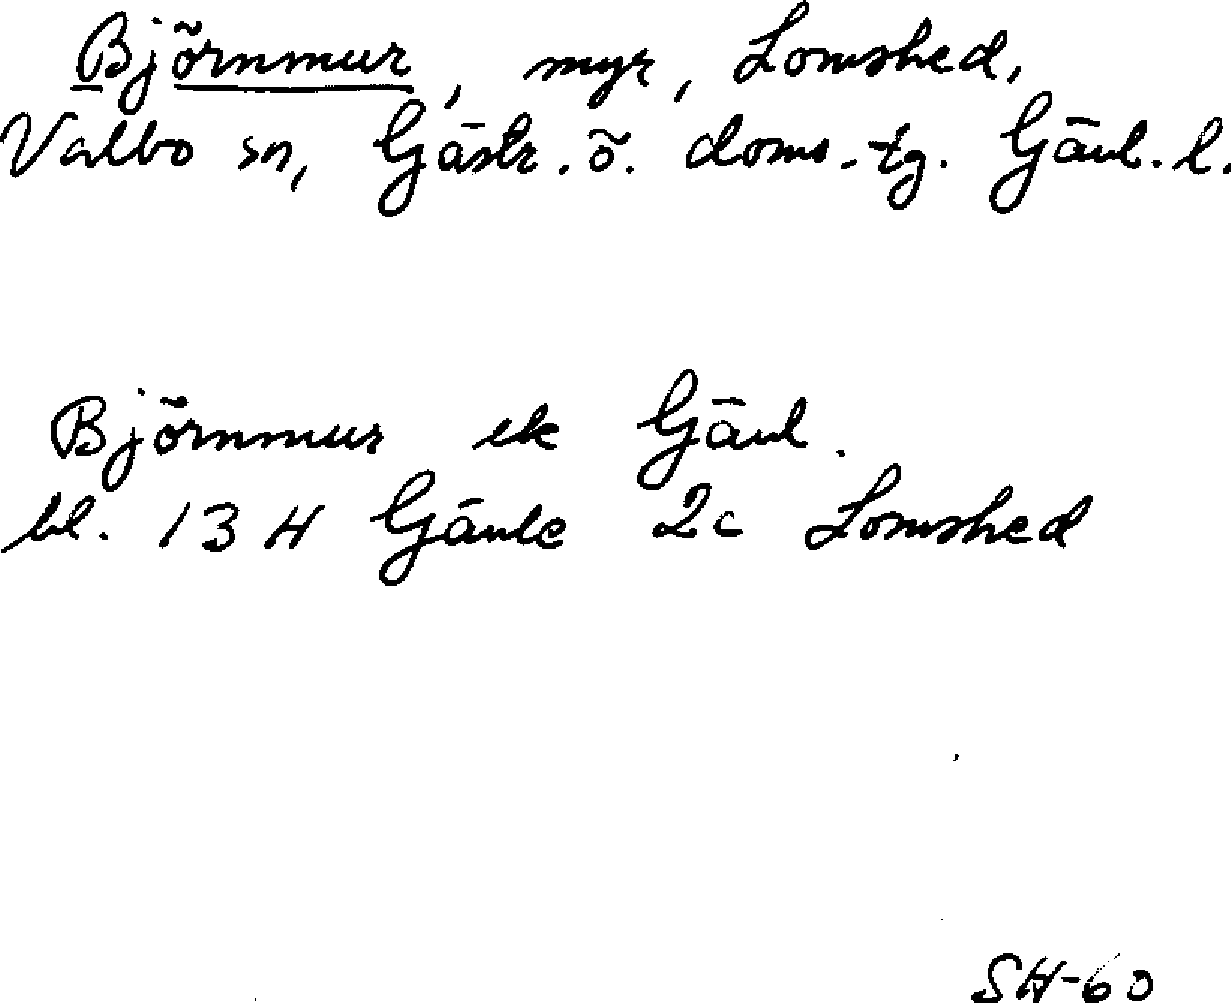 Björnmur, myr, Lomshed,
Valbo sn, Gästr. ö. doms.-tg. Gävl. l.
Björnmur ek Gävl.
bl. 13 H Gävle 2c Lomshed
SH-60